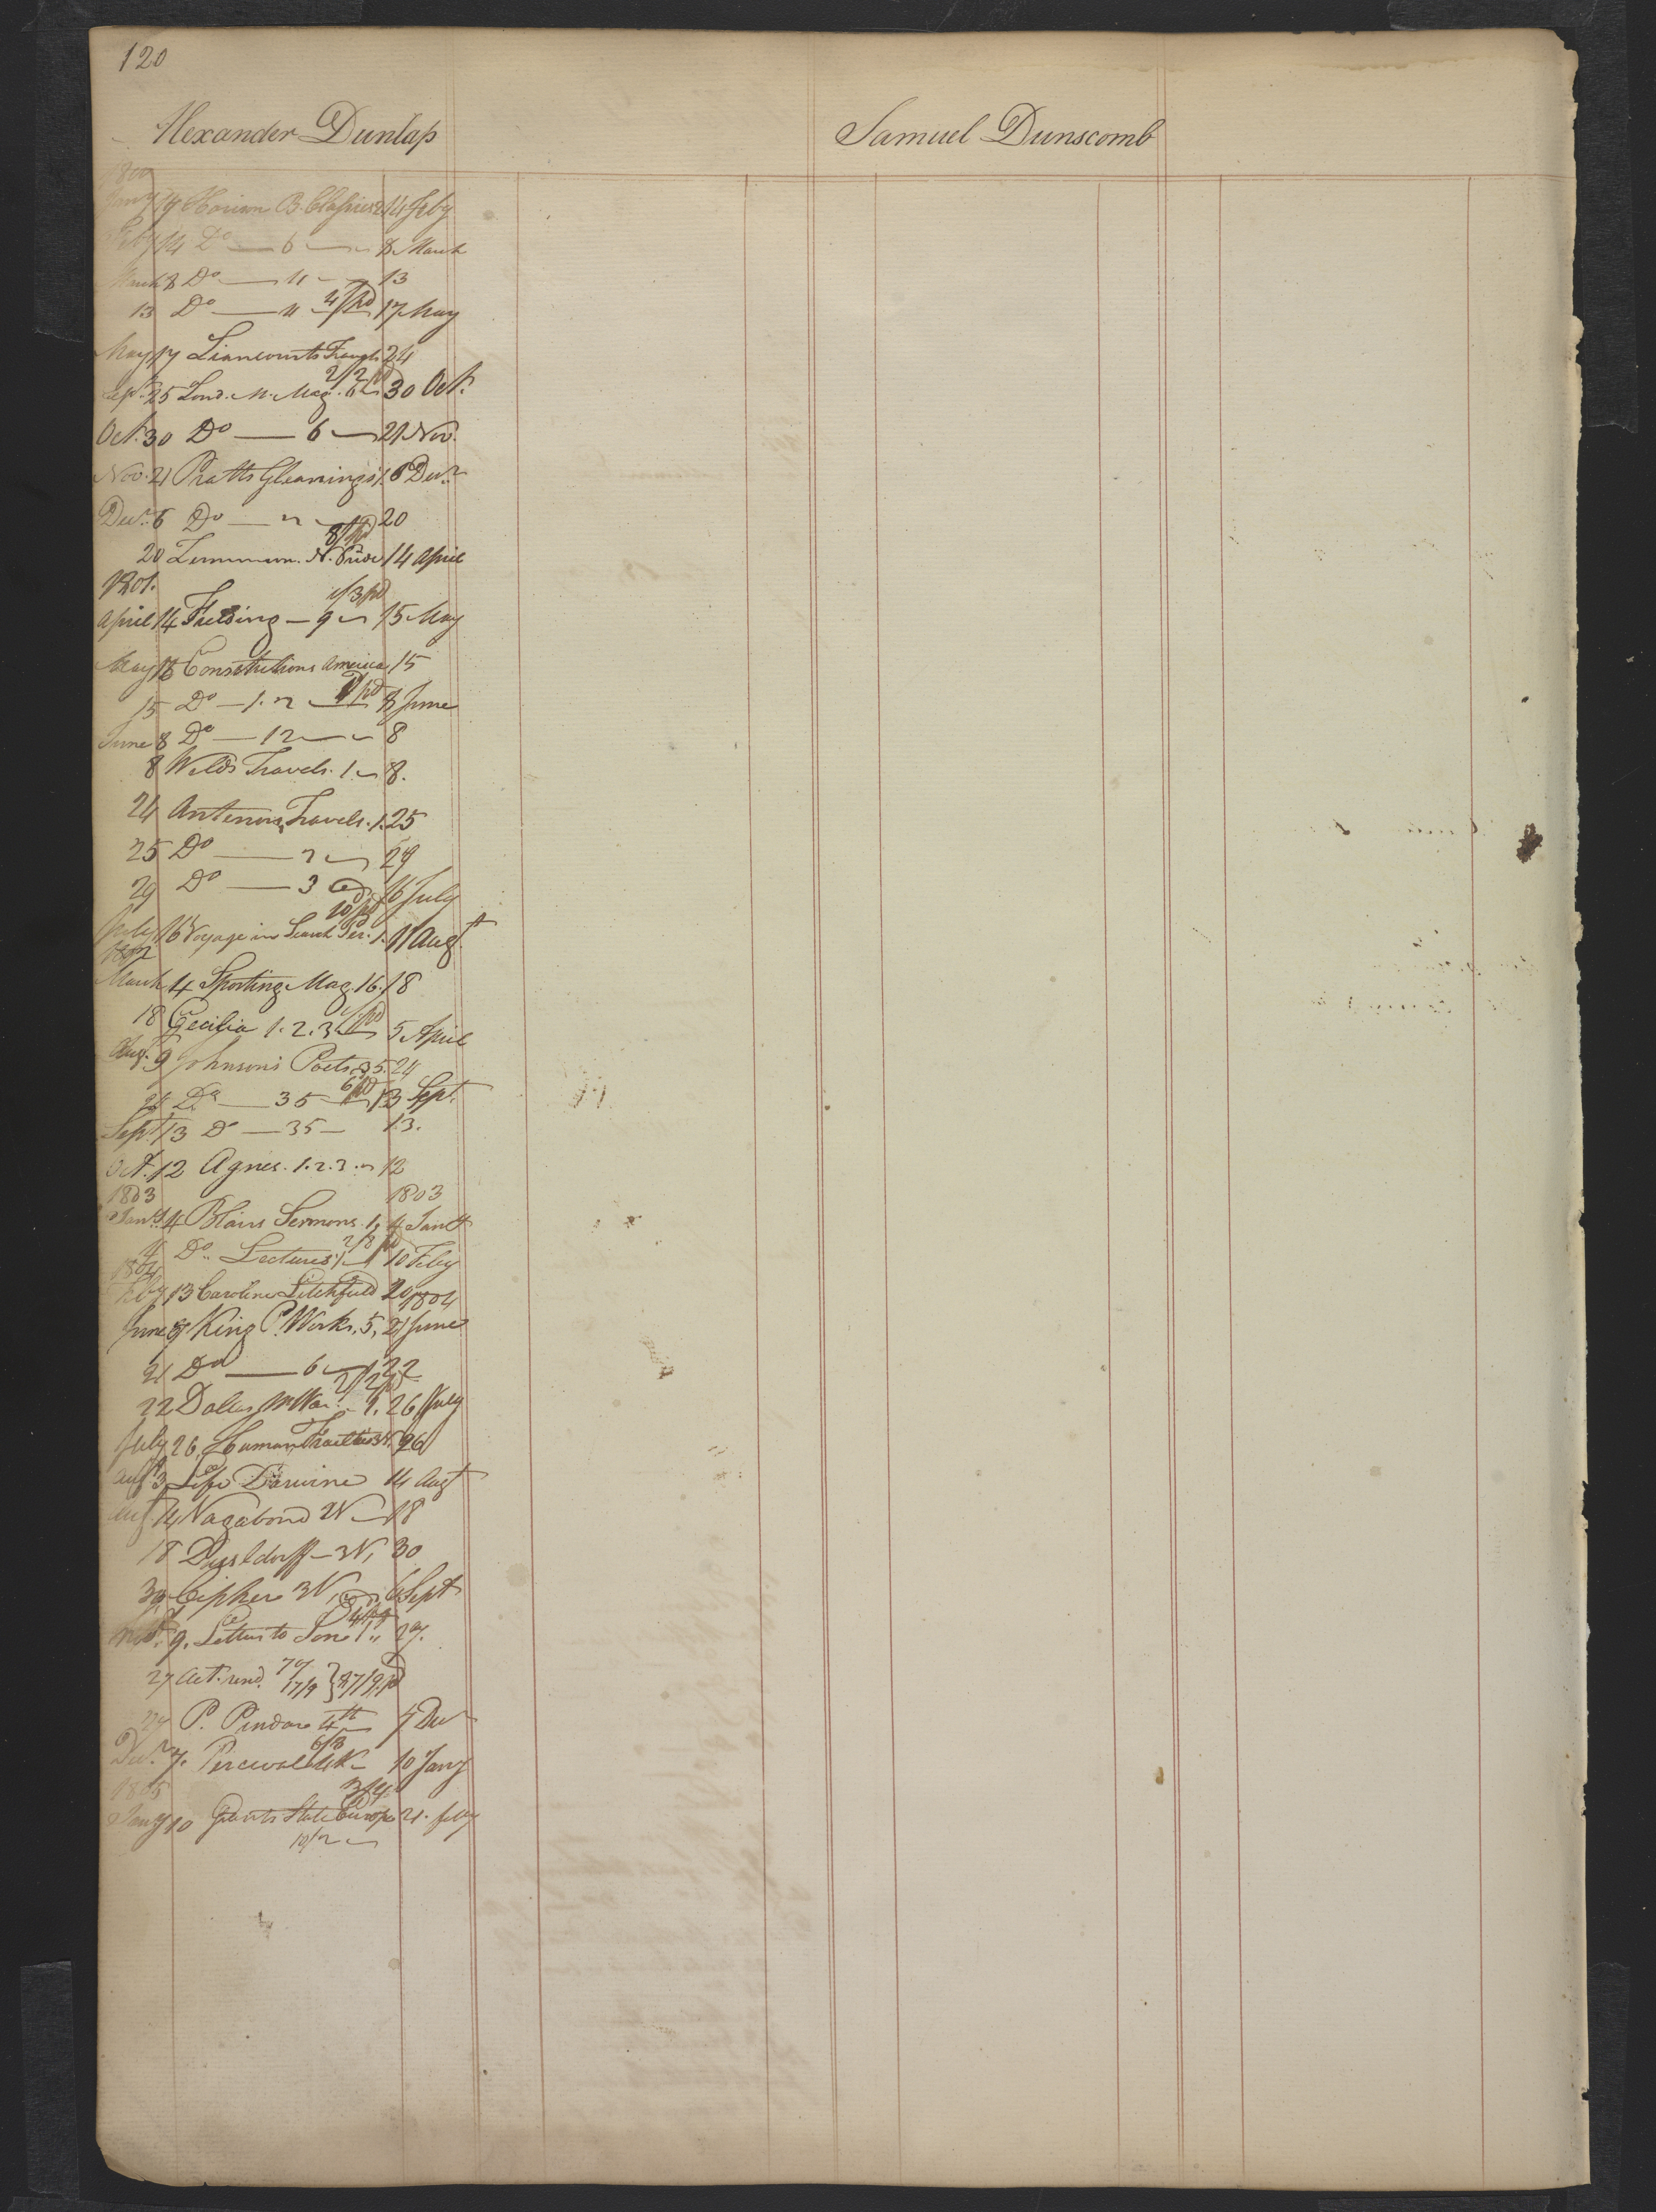 120
Alexander Dunlap
Samuel Dunscomb
1800
Jany 19 Harison B. Classics 2 14 Feby
Feby 14 Do — 6 — 8 March
March 8 Do — 11 — 13
13 Do — 11 4/ pd 17 May
May 17 Liancourts Travels 24
2/2 pd
Sept. 25 Lond. M. Mag. 6 30 Oct.
Oct. 30 Do — 6 — 21 Nov.
Nov. 21 Pratts Gleanings 1. 6 Decr.
Decr. 6 Do — 2 — 20
8/ pd
20 Zimmerm. N. Pride 14 April
1801.
1/3 pd
April 14 Fielding — 9 — 15 May
May 15 Constitutions America 15
15 Do — 1. 2 — pd 8 June
June 8 Do — 12 — 8
8 Welds Travels. 1 — 8.
24 Antenors Travels. 1. 25
25 Do — 2 — 29
29 Do — 3 16 July
10/ pd
July 16 Voyage in Search Per. 1. 11 Augt
1802
March 4 Sporting Mag. 16. 18
18 Cecilia 1. 2. 3 pd 5 April
Aug. 9 Johnson's Poets, 35. 24
24 Do — 35 6/ pd 13 Sept.
Sept 13 Do — 35 — 13.
Oct. 12 Agnes. 1. 2. 3. — 12
1803 1803
Jany. 4 Blairs Sermons. 1, 4 Jany
4 Do.. Lectures 1 2/8 pd 10 Feby
1804
Feby 13 Caroline Litchfield 20 1804
June 8 King P. Works, 5, 21 June
21 Do — 6 — 1, 22
2/2 pd
22 Dallas M Wor. — 1, 26 July
July 26, Human Frailties 3N. 26
Augt 3 Life Darwine 14 Augt
Augt 14 Vagabond 2N — 18
18 Dusseldorff — 3N, 30
30 Cipher 3N, 6 Sept
4/ pd
9. Letters to Son 1 ,, 27.
27 Act. rend. 17/9 } 27/9 pd
27 P. Pindar 4th 7 Decr
6/8
Decr. 7. Percival 4N — 10 Jany
1805
Jany 10 Gentz State Europe 21. Feby
10/2 —